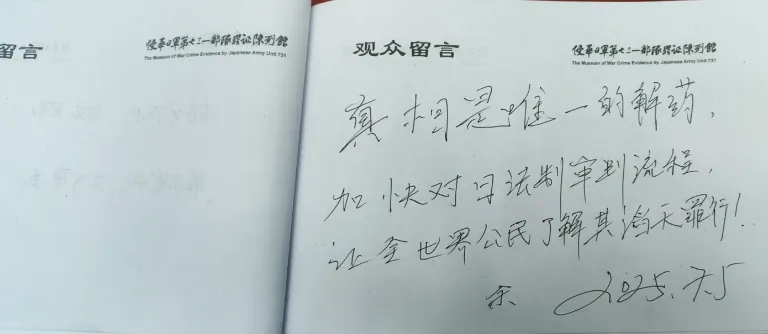 留言
侵华日军第七三一部队罪证陈列馆
The Museum of War Crime Evidence by Japanese Army Unit 731
观众留言
侵华日军第七三一部队罪证陈列馆
The Museum of War Crime Evidence by Japanese Army Unit 731
真相是唯一的解药,
加快对日法制审判流程,
让全世界公民了解其滔天罪行!
余 2025.7.5